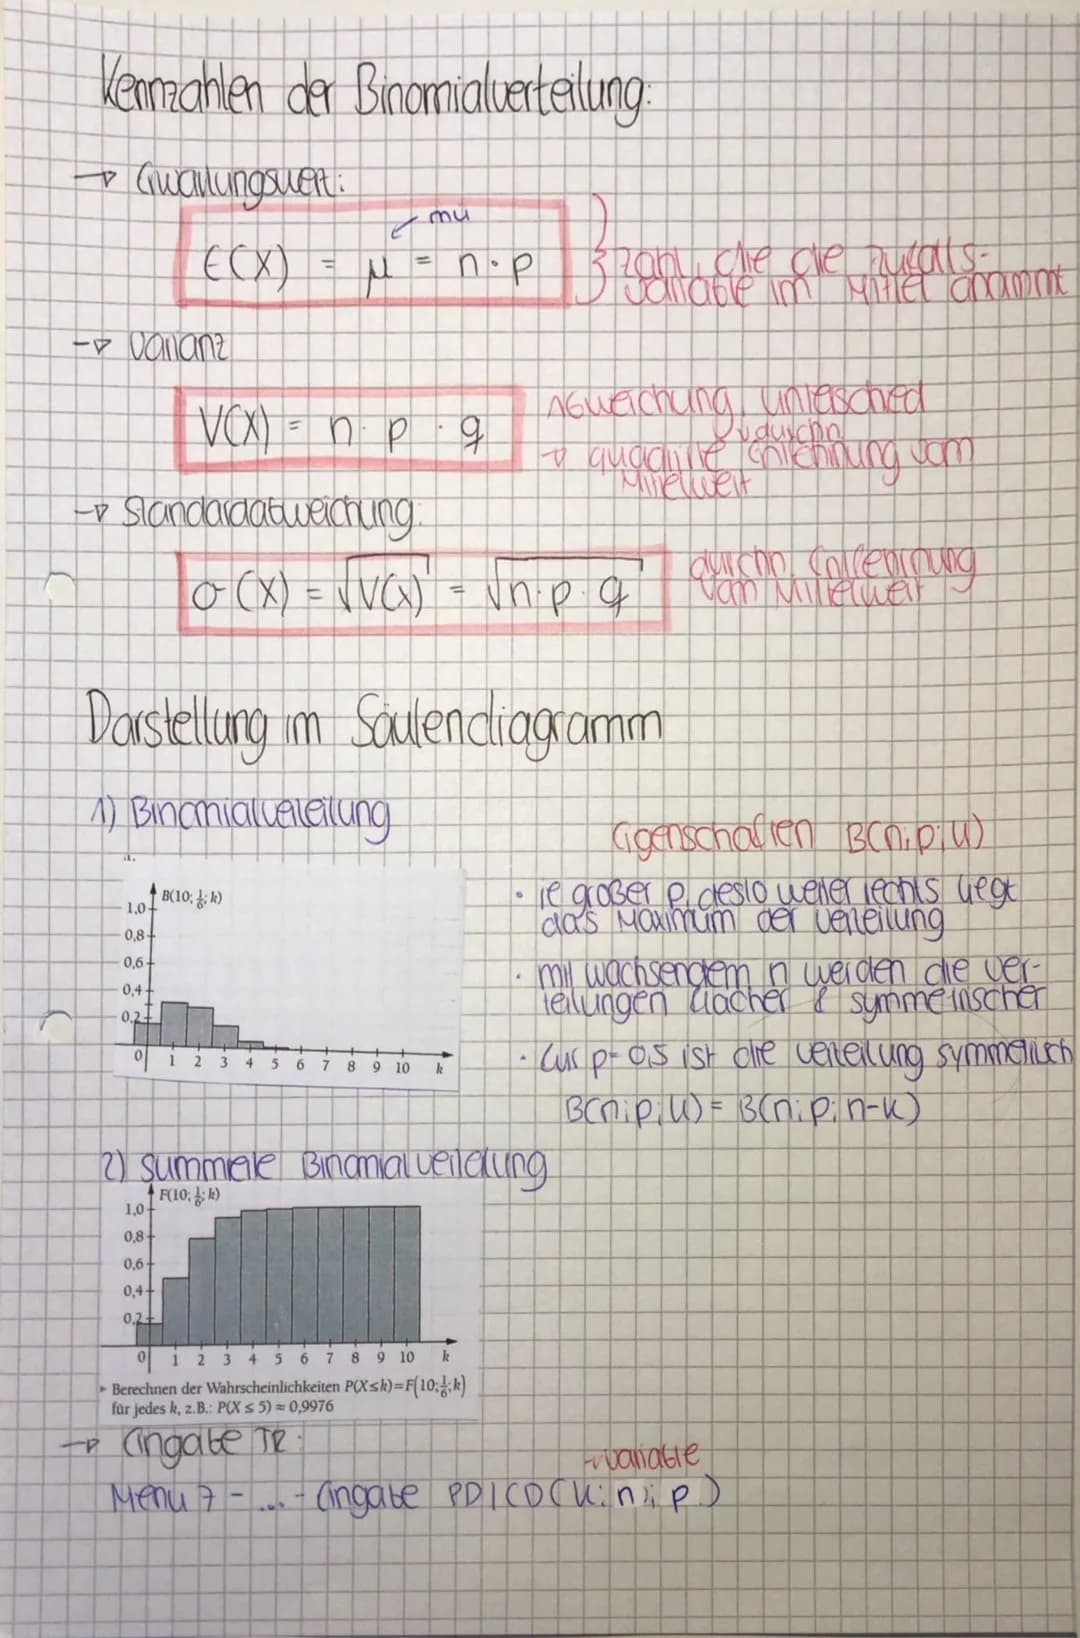 Kennzahlen der Binomialverteilung:
→ Erwartungswert:
mu
E(X) = μ = n·p
} Zahl, die die Zufalls-
variable im Mittel annimmt
→ Varianz
V(X) = n · p · q
Abweichung, Unterschied
durchn.
→ quadrierte Entfernung vom
Mittelwert
→ Standardabweichung:
σ(X) = √V(X) = √n·p·q
durchn. Entfernung
vom Mittelwert
Darstellung im Säulendiagramm
1) Binomialverteilung
Eigenschaften B(n;p;k)
B(10; 1/6; k)
1,0
0,8
0,6
0,4
0,2
0 1 2 3 4 5 6 7 8 9 10 k
• je größer p, desto weiter rechts liegt
das Maximum der Verteilung
• mit wachsendem n werden die Ver-
teilungen flacher & symmetrischer
• für p=0,5 ist die Verteilung symmetrisch
B(n;p;k) = B(n;p;n-k)
2) summierte Binomialverteilung
F(10; 1/6; k)
1,0
0,8
0,6
0,4
0,2
0 1 2 3 4 5 6 7 8 9 10 k
▸ Berechnen der Wahrscheinlichkeiten P(X≤k)=F(10;1/6;k)
für jedes k, z.B.: P(X ≤ 5) ≈ 0,9976
→ Eingabe TR:
→ variable
Menu 7 - ... - Eingabe PD/CD (k; n; p)